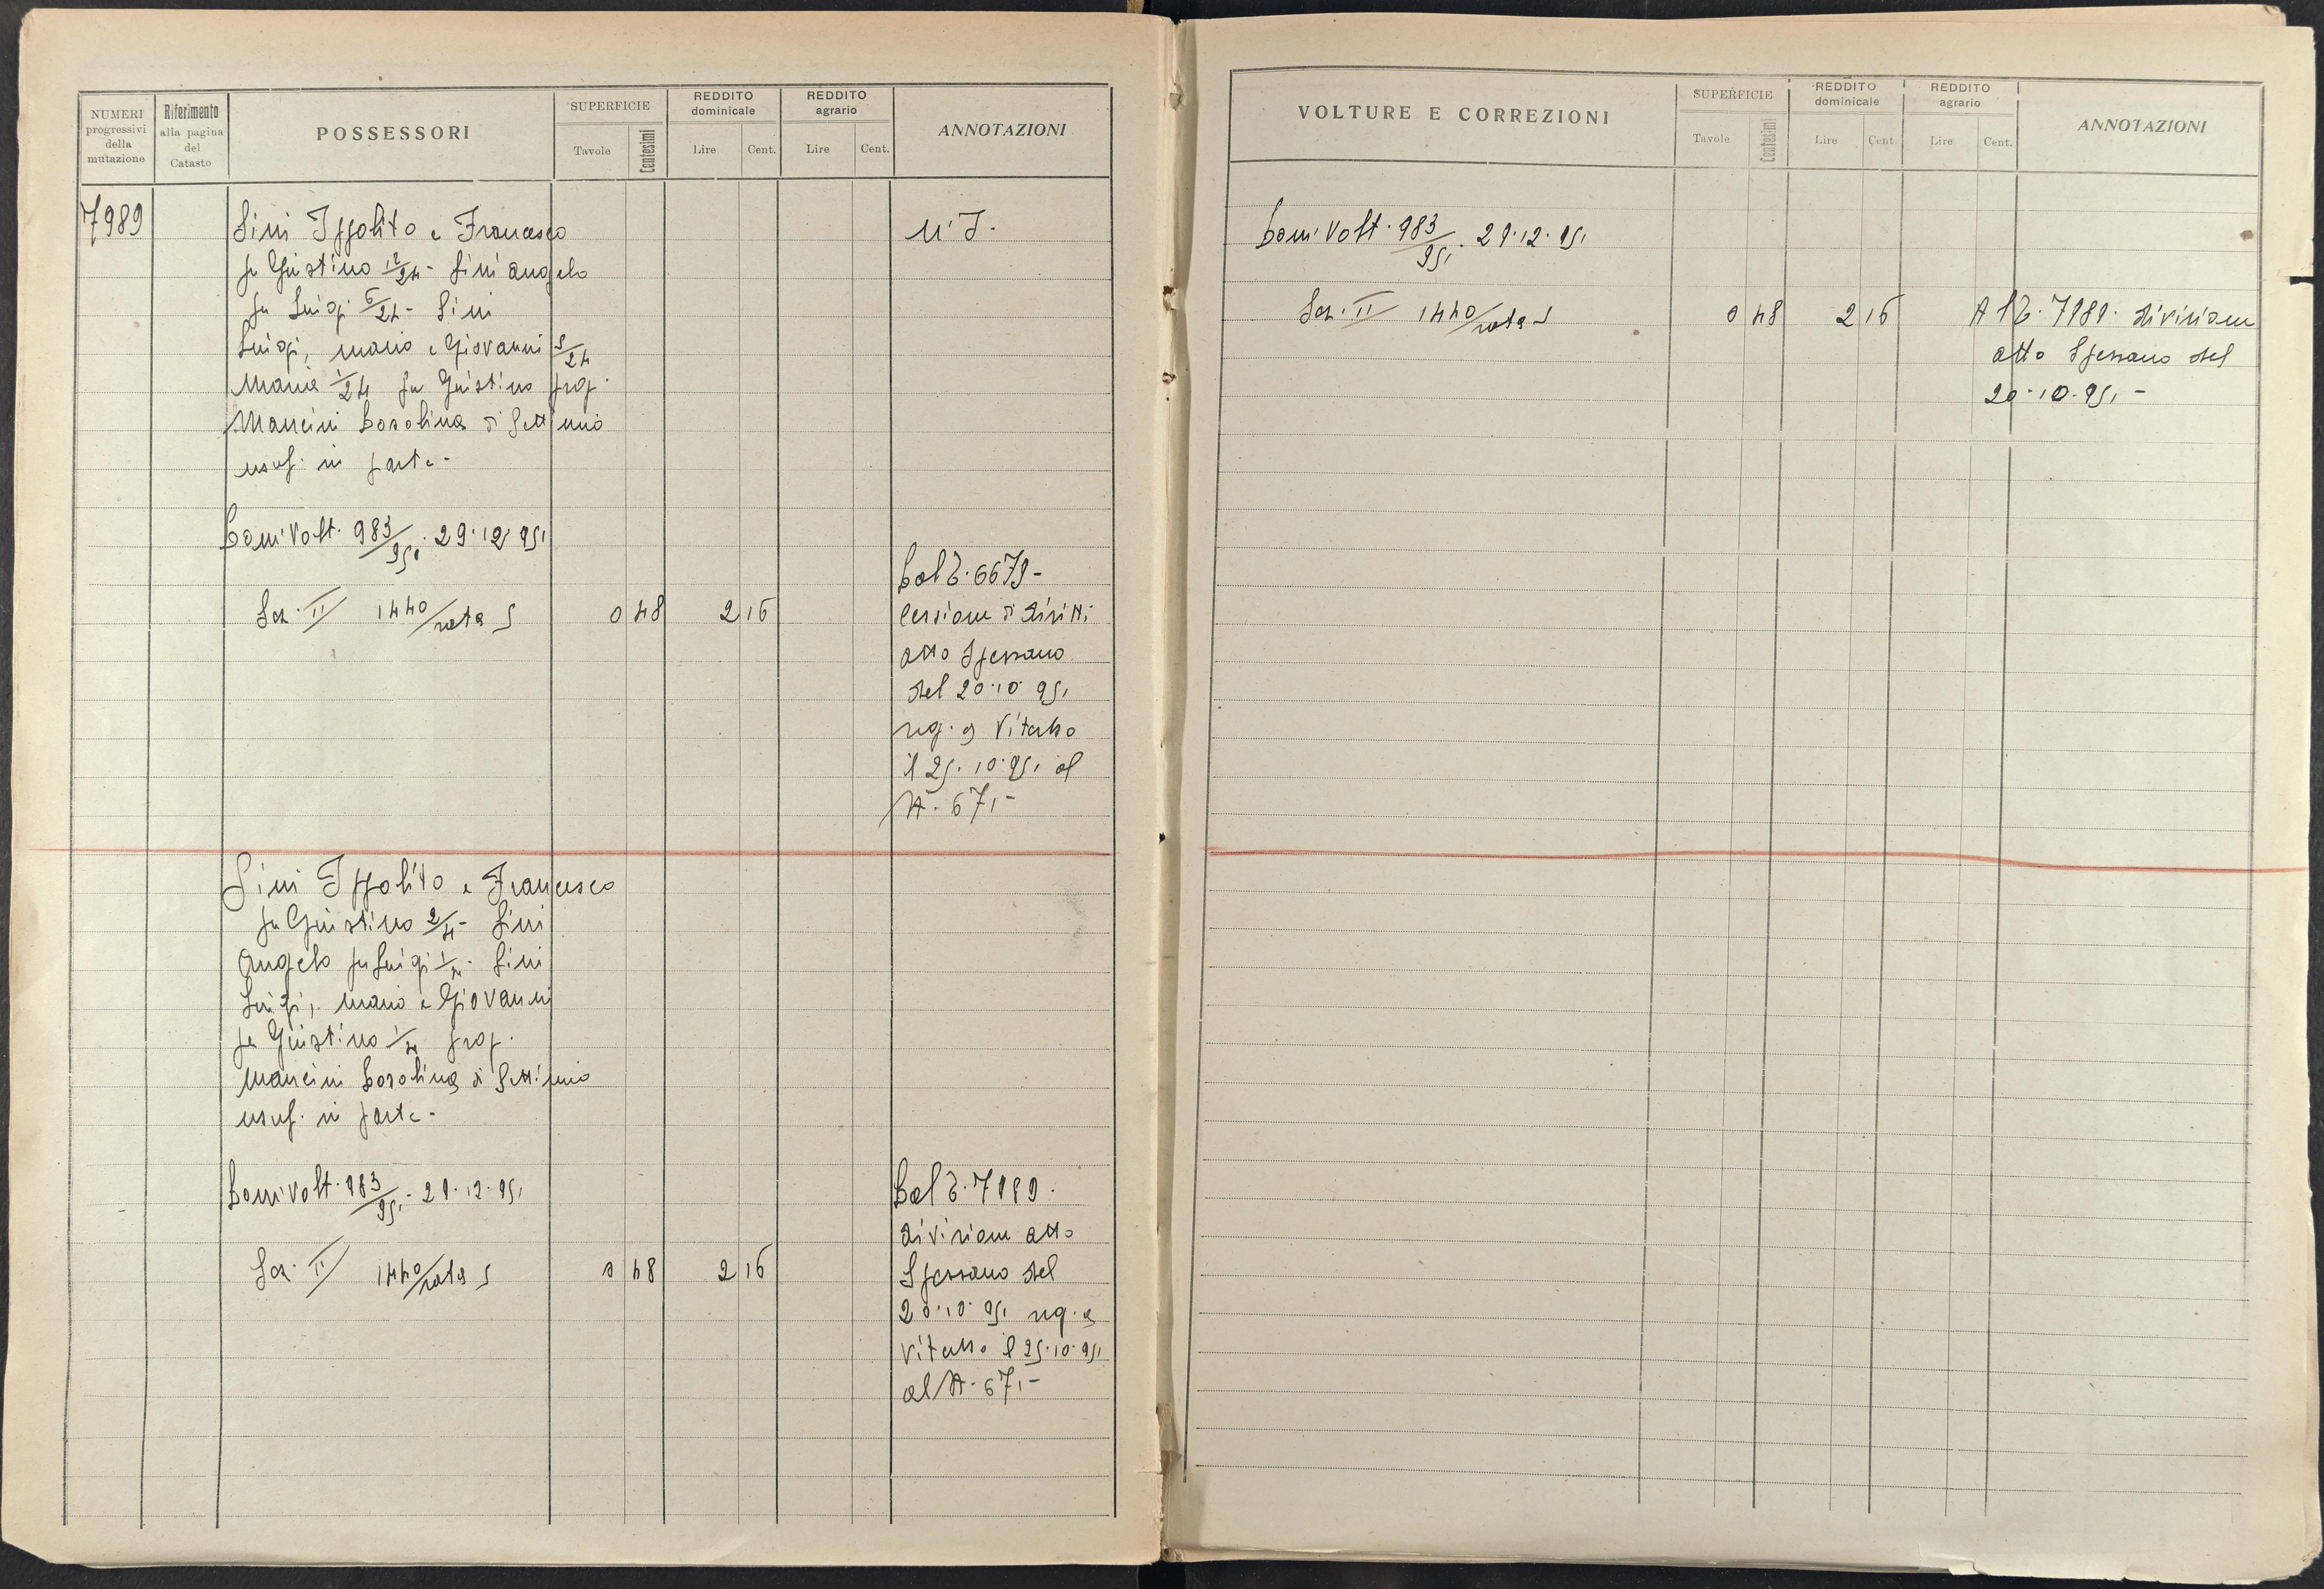 NUMERI progressivi della mutazione
Riferimento alla pagina del Catasto
POSSESSORI
SUPERFICIE
Tavole
Centesimi
REDDITO dominicale
Lire
Cent.
REDDITO agrario
Lire
Cent.
ANNOTAZIONI
7989
Sini Ippolito e Francesco
fu Giustino 12/24 - Sini Angelo
fu Luigi 6/24 - Sini
Luigi, Mario e Giovanni 5/24
Maria 1/24 fu Giustino prop.
Mancini Carolina di Settimio
usuf. in parte -
N. I.
Com. Volt. 983/951 . 29.12.951
Sez. II 1440/rata S 0 48 2 16
Dal P. 6679 -
Cessione di diritti
atto Spessano
del 20.10.951
reg. a Viterbo
il 25.10.951 al
N. 671 -
Sini Ippolito e Francesco
fu Giustino 2/4 - Sini
Angelo fu Luigi 1/4 - Sini
Luigi, Mario e Giovanni
fu Giustino 1/4 prop.
Mancini Carolina di Settimio
usuf. in parte -
Com. Volt. 983/951 - 29.12.951
Sez. II 1440/rata S 0 48 2 16
Dal P. 7989.
divisione atto
Spessano del
20.10.951 reg. a
Viterbo il 25.10.951
al N. 671 -
VOLTURE E CORREZIONI
SUPERFICIE
Tavole
Centesimi
REDDITO dominicale
Lire
Cent
REDDITO agrario
Lire
Cent.
ANNOTAZIONI
Com. Volt. 983/951 . 29.12.951
Sez. II 1440/rata S 0 48 2 16
Al P. 7989. divisione
atto Spessano del
20.10.951 -